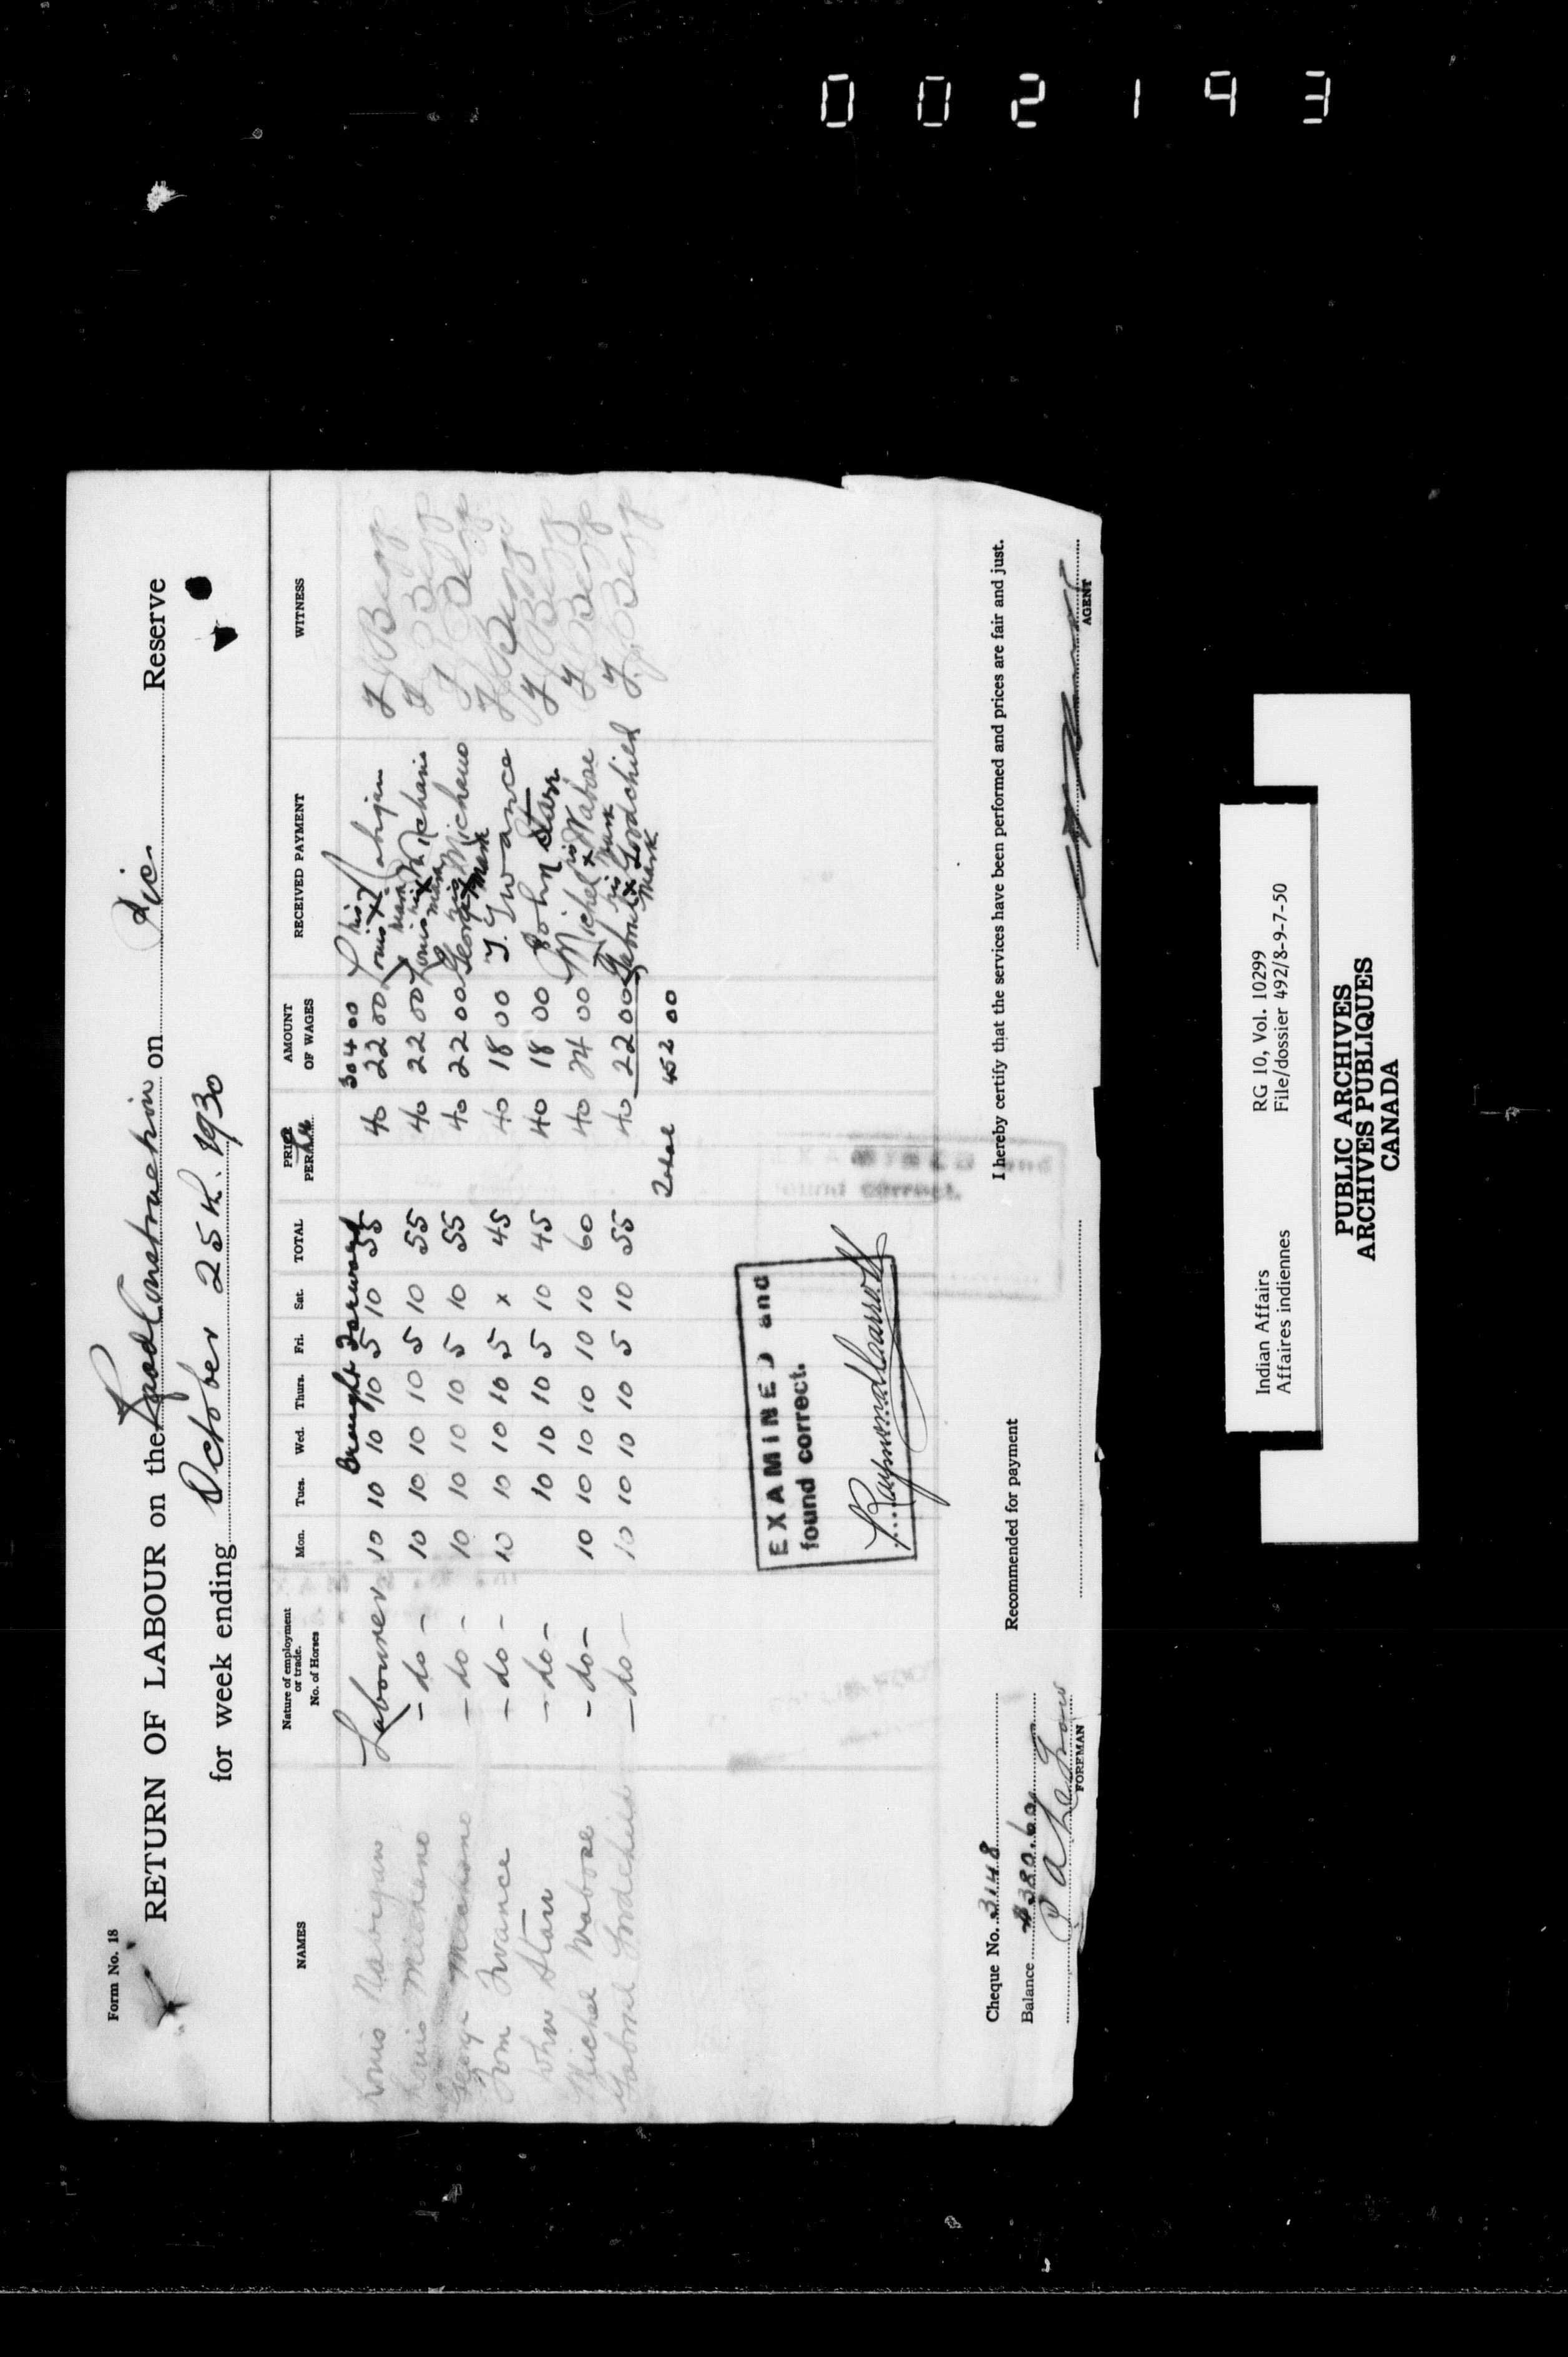 002193
Form No. 18
RETURN OF LABOUR on the Road Construction on Pic. Reserve
for week ending October 25th. 1930
NAMES Nature of employment or trade. No. of Horses Mon. Tues. Wed. Thurs. Fri. Sat. TOTAL PRICE PER hr AMOUNT OF WAGES RECEIVED PAYMENT WITNESS
Brought Forward 304 00
Louis Nabigon Labourer 10 10 10 10 5 10 55 40 22 00 Louis his x mark Nabigon
Louis Michano - do - 10 10 10 10 5 10 55 40 22 00 Louis his x mark Michano
George Michano - do - 10 10 10 10 5 10 55 40 22 00 George his x mark Michano
Tom Twance - do - 10 10 10 10 5 x 45 40 18 00 T. Twance
John Starr - do - 10 10 10 5 10 45 40 18 00 John Starr
Michel Wabose - do - 10 10 10 10 10 10 60 40 24 00 Michel his x mark Wabose
Gabriel Goodchild - do - 10 10 10 10 5 10 55 40 22 00 Gabriel his x mark Goodchild
Total 452 00
EXAMINED and
found correct.
Cheque No. 3148
Balance $380.60
FOREMAN
Recommended for payment
I hereby certify that the services have been performed and prices are fair and just.
AGENT
Indian Affairs RG 10, Vol. 10299
Affaires indiennes File/dossier 492/8-9-7-50
PUBLIC ARCHIVES
ARCHIVES PUBLIQUES
CANADA